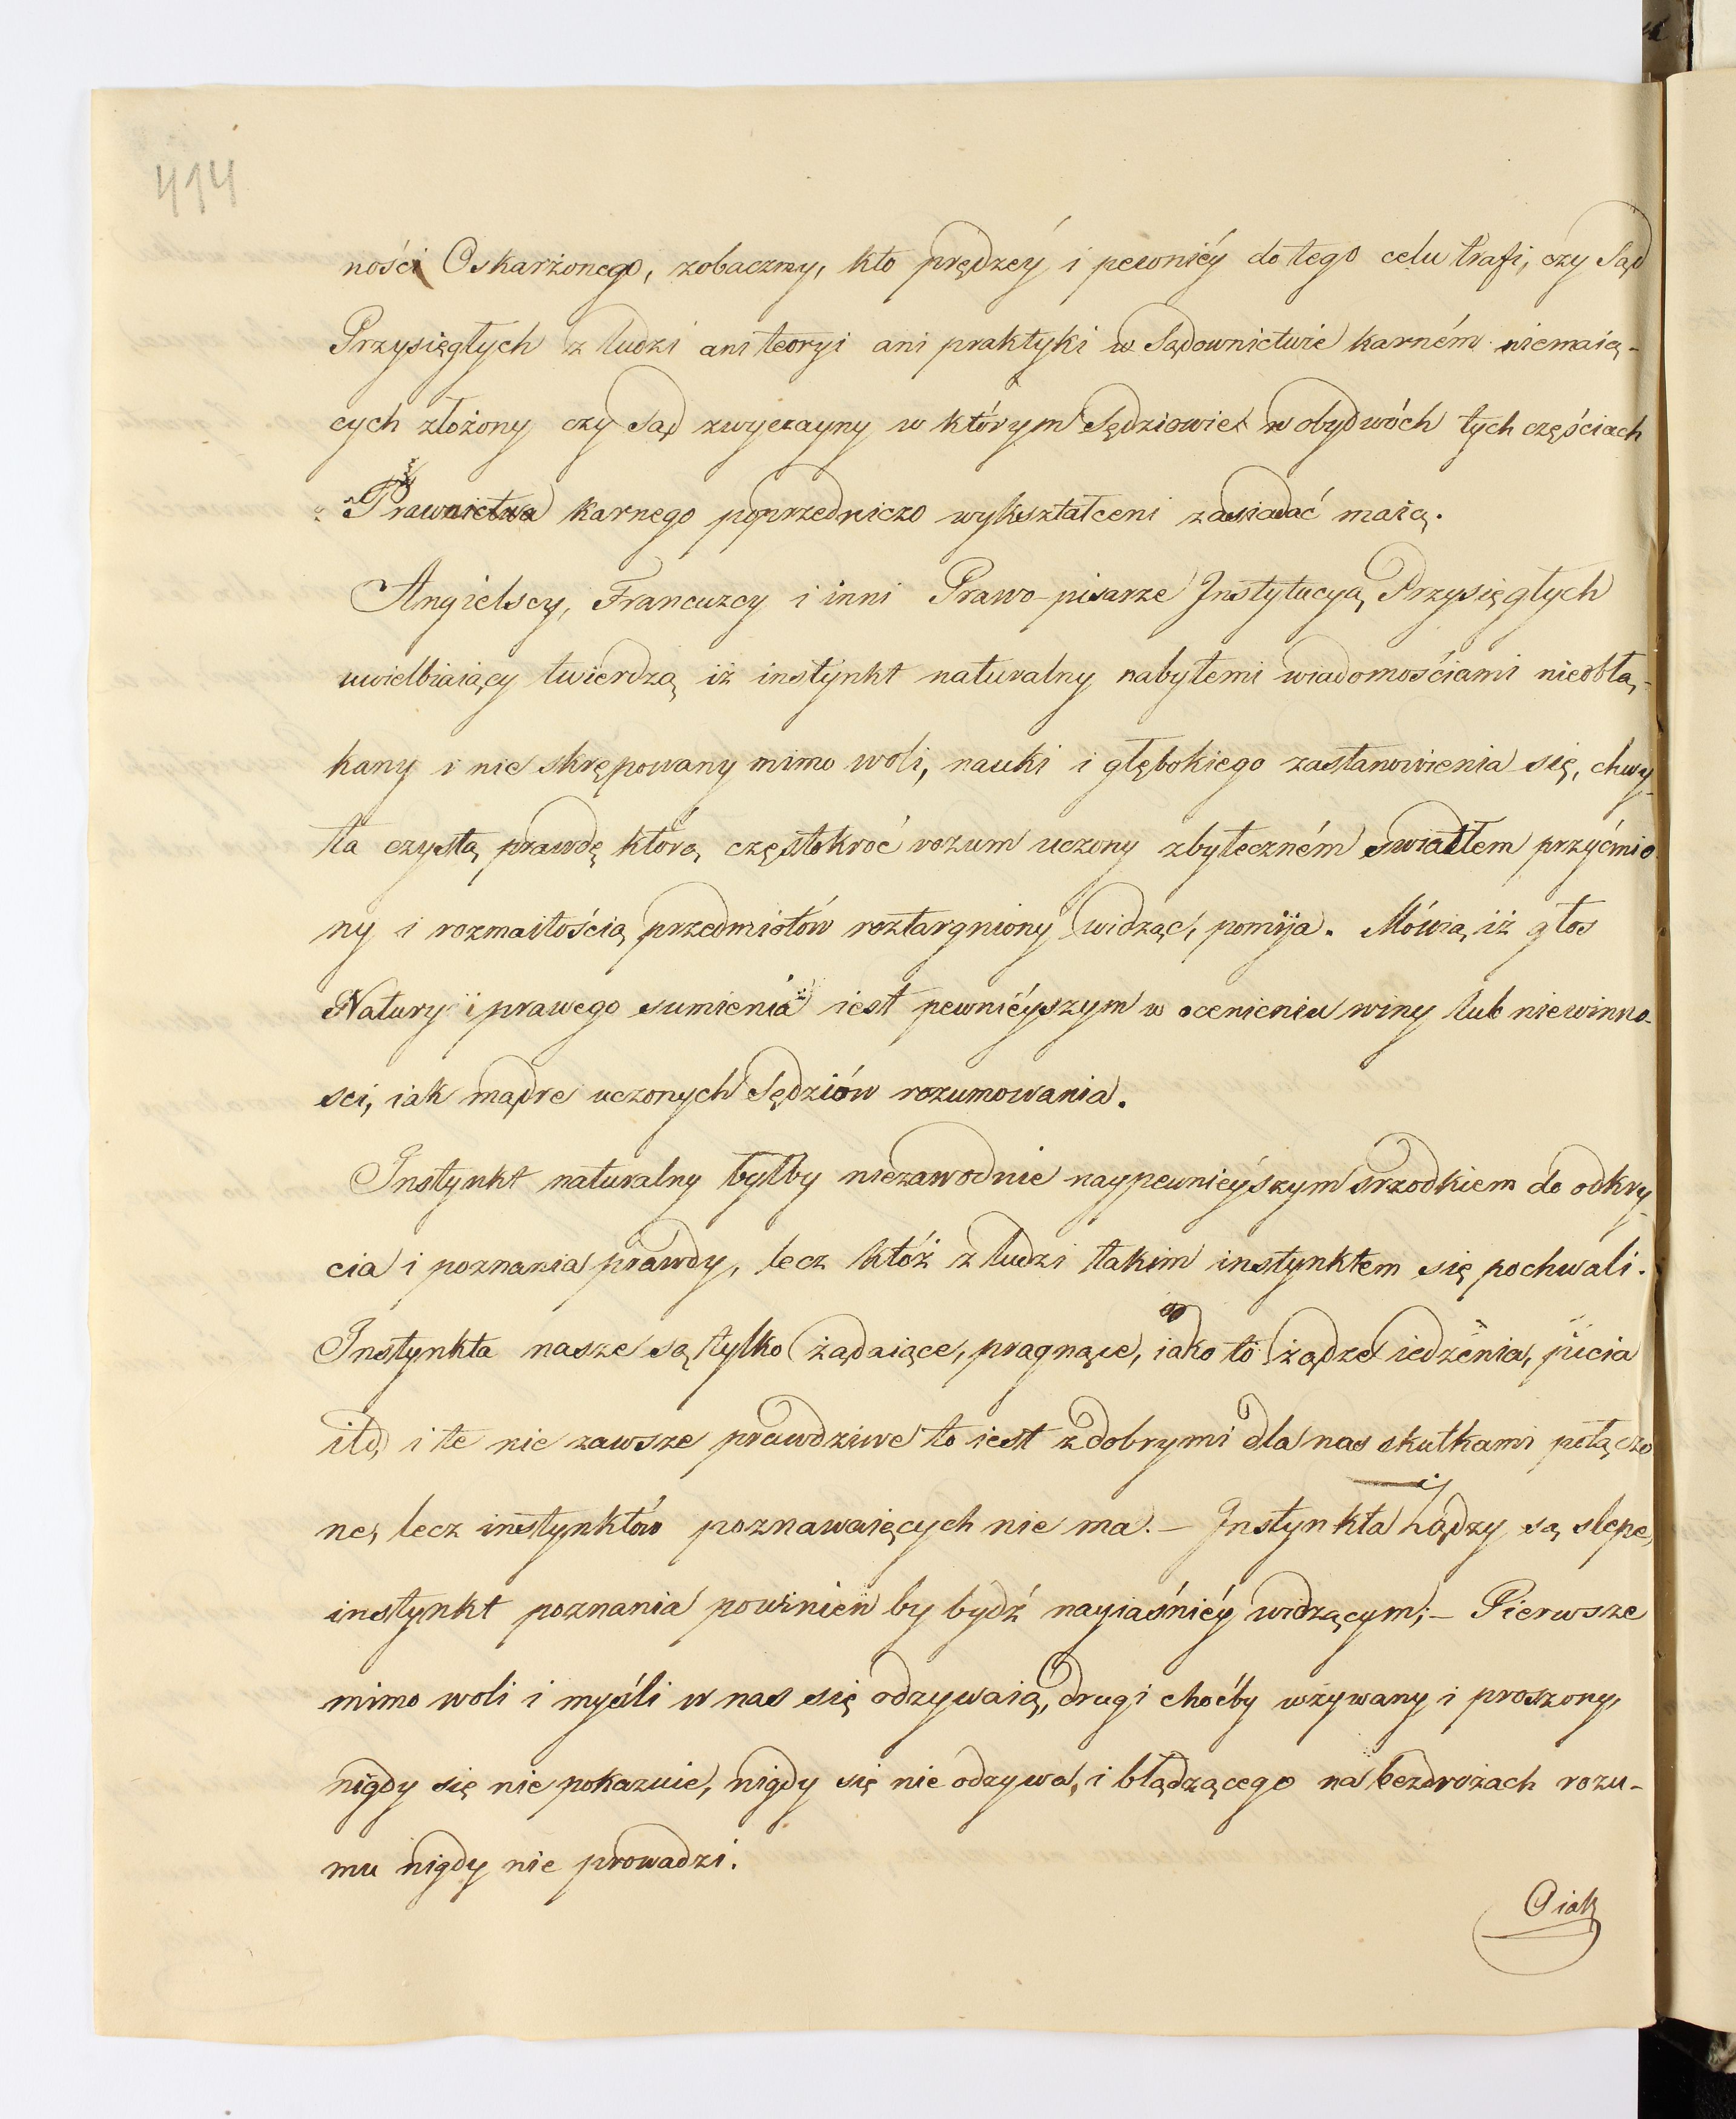 414
ności Oskarżonego, zobaczmy, kto prędzéy i pewniéy do tego celu trafi, czy Sąd
Przysięgłych z ludzi ani teoryi ani praktyki w Sądownictwie karném niemaią-
cych złożony czy Sąd zwyczayny w którym Sędziowie w obydwóch tych częściach
Prawnictwa karnego poprzedniczo wykształceni zasiadać maią.
Angielscy, Francuzcy i inni Prawo-pisarze Instytucyą Przysięgłych
uwielbiaiący twierdzą iż instynkt naturalny nabytemi wiadomościami nieobłą-
kany i nie skrępowany mimo woli, nauki i głębokiego zastanowienia się, chwy-
ta czystą prawdę którą częstokroć rozum uczony zbyteczném swiatłem przyćmio
ny i rozmaitością przedmiotów roztargniony widząc, pomija. Mówią iż głos
Natury i prawego sumienia iest pewniéyszym w ocenieniu winy lub niewinno-
sci, iak mądre uczonych Sędziów rozumowania.
Instynkt naturalny byłby niezawodnie naypewniéyszym srzodkiem do odkry-
cia i poznania prawdy, lecz któż z ludzi takim instynktem się pochwali.
Instynkta nasze są tylko żądaiące, pragnące, iako to żądze iedzenia, picia
itd, i te nie zawsze prawdziwe to iest z dobrymi dla nas skutkami połączo
ne, lecz instynktów poznawaiących nie ma. – Instynkta żądzy są slepe,
instynkt poznania powinien by bydź nayiaśniéy widzącym; – Pierwsze
mimo woli i myśli w nas się odzywaią, drugi choćby wzywany i proszony,
nigdy się nie pokazuie, nigdy się nie odzywa, i błądzącego na bezdrożach rozu-
mu nigdy nie prowadzi.
O iak